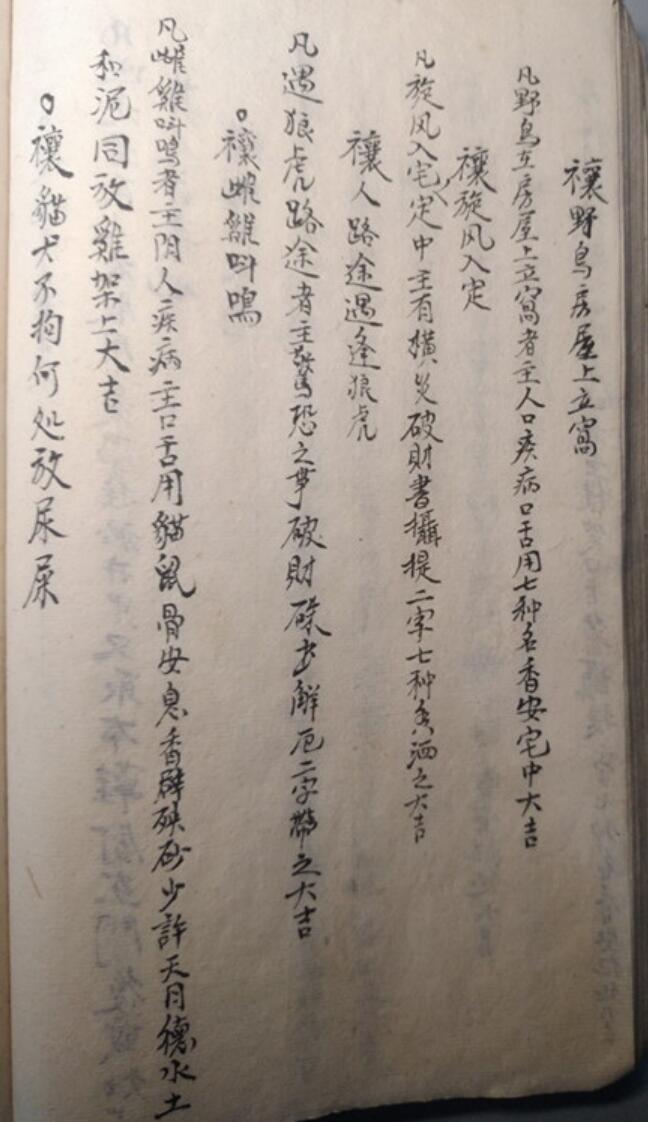 禳野鳥房屋上立窩
凡野鳥在房屋上立窩者主人口疾病口舌用七种名香安宅中大吉
禳旋风入宅
凡旋风入宅宅中主有横災破財書攝提二字七种香洒之大吉
禳人路途遇逢狼虎
凡遇狼虎路途者主驚恐之事破財硃书解厄二字帶之大吉
禳雌雞叫鳴
凡雌雞叫鳴者主阴人疾病主口舌用貓鼠骨安息香硃砂少許天月德水土
和泥同放雞架上大吉
禳貓犬不拘何处放尿屎